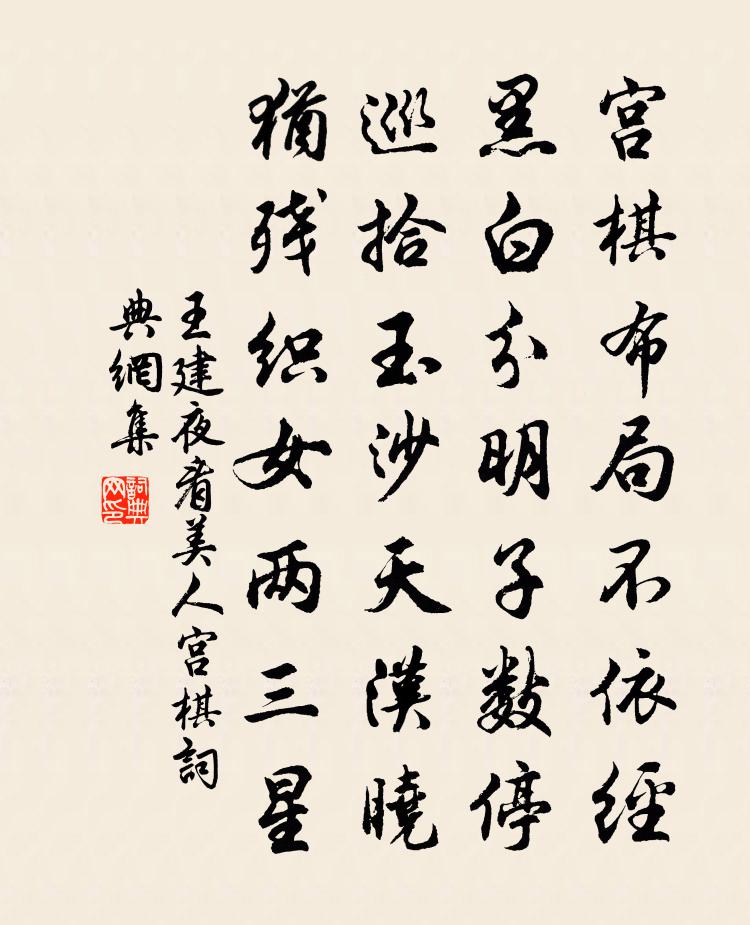 宫棋布局不依經
黑白分明子數停
巡拾玉沙天漢曉
猶残织女两三星
王建夜看美人宫棋詞
典網集
詞典网印